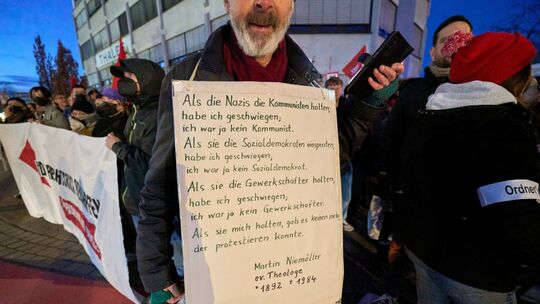 THALIA
Als die Nazis die Kommunisten holten,
habe ich geschwiegen;
ich war ja kein Kommunist.
Als sie die Sozialdemokraten einsperrten,
habe ich geschwiegen;
ich war ja kein Sozialdemokrat.
Als sie die Gewerkschafter holten,
habe ich geschwiegen,
ich war ja kein Gewerkschafter.
Als sie mich holten, gab es keinen mehr,
der protestieren konnte.
Martin Niemöller
ev. Theologe
*1892 +1984
Ordner